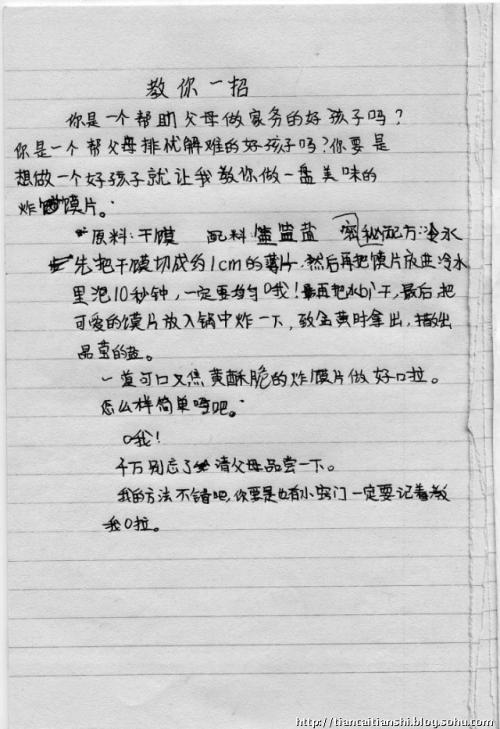 教你一招
你是一个帮助父母做家务的好孩子吗?
你是一个帮父母排忧解难的好孩子吗?你要是
想做一个好孩子就让我教你做一盘美味的
炸馍片。
原料:干馍 配料:盐 秘配方:冷水
先把干馍切成约1cm的薄片,然后再把馍片放进冷水
里泡10秒钟,一定要均匀哦!再把水bi干,最后,把
可爱的馍片放入锅中炸一下,致金黄时拿出,撒出
品尝的盐。
一道可口又焦黄酥脆的炸馍片做好口拉。
怎么样简单吧。
口我!
千万别忘了请父母品尝一下。
我的方法不错吧,你要是也有小窍门一定要记着教
我口拉。
http://tiancaitianshi.blog.sohu.com